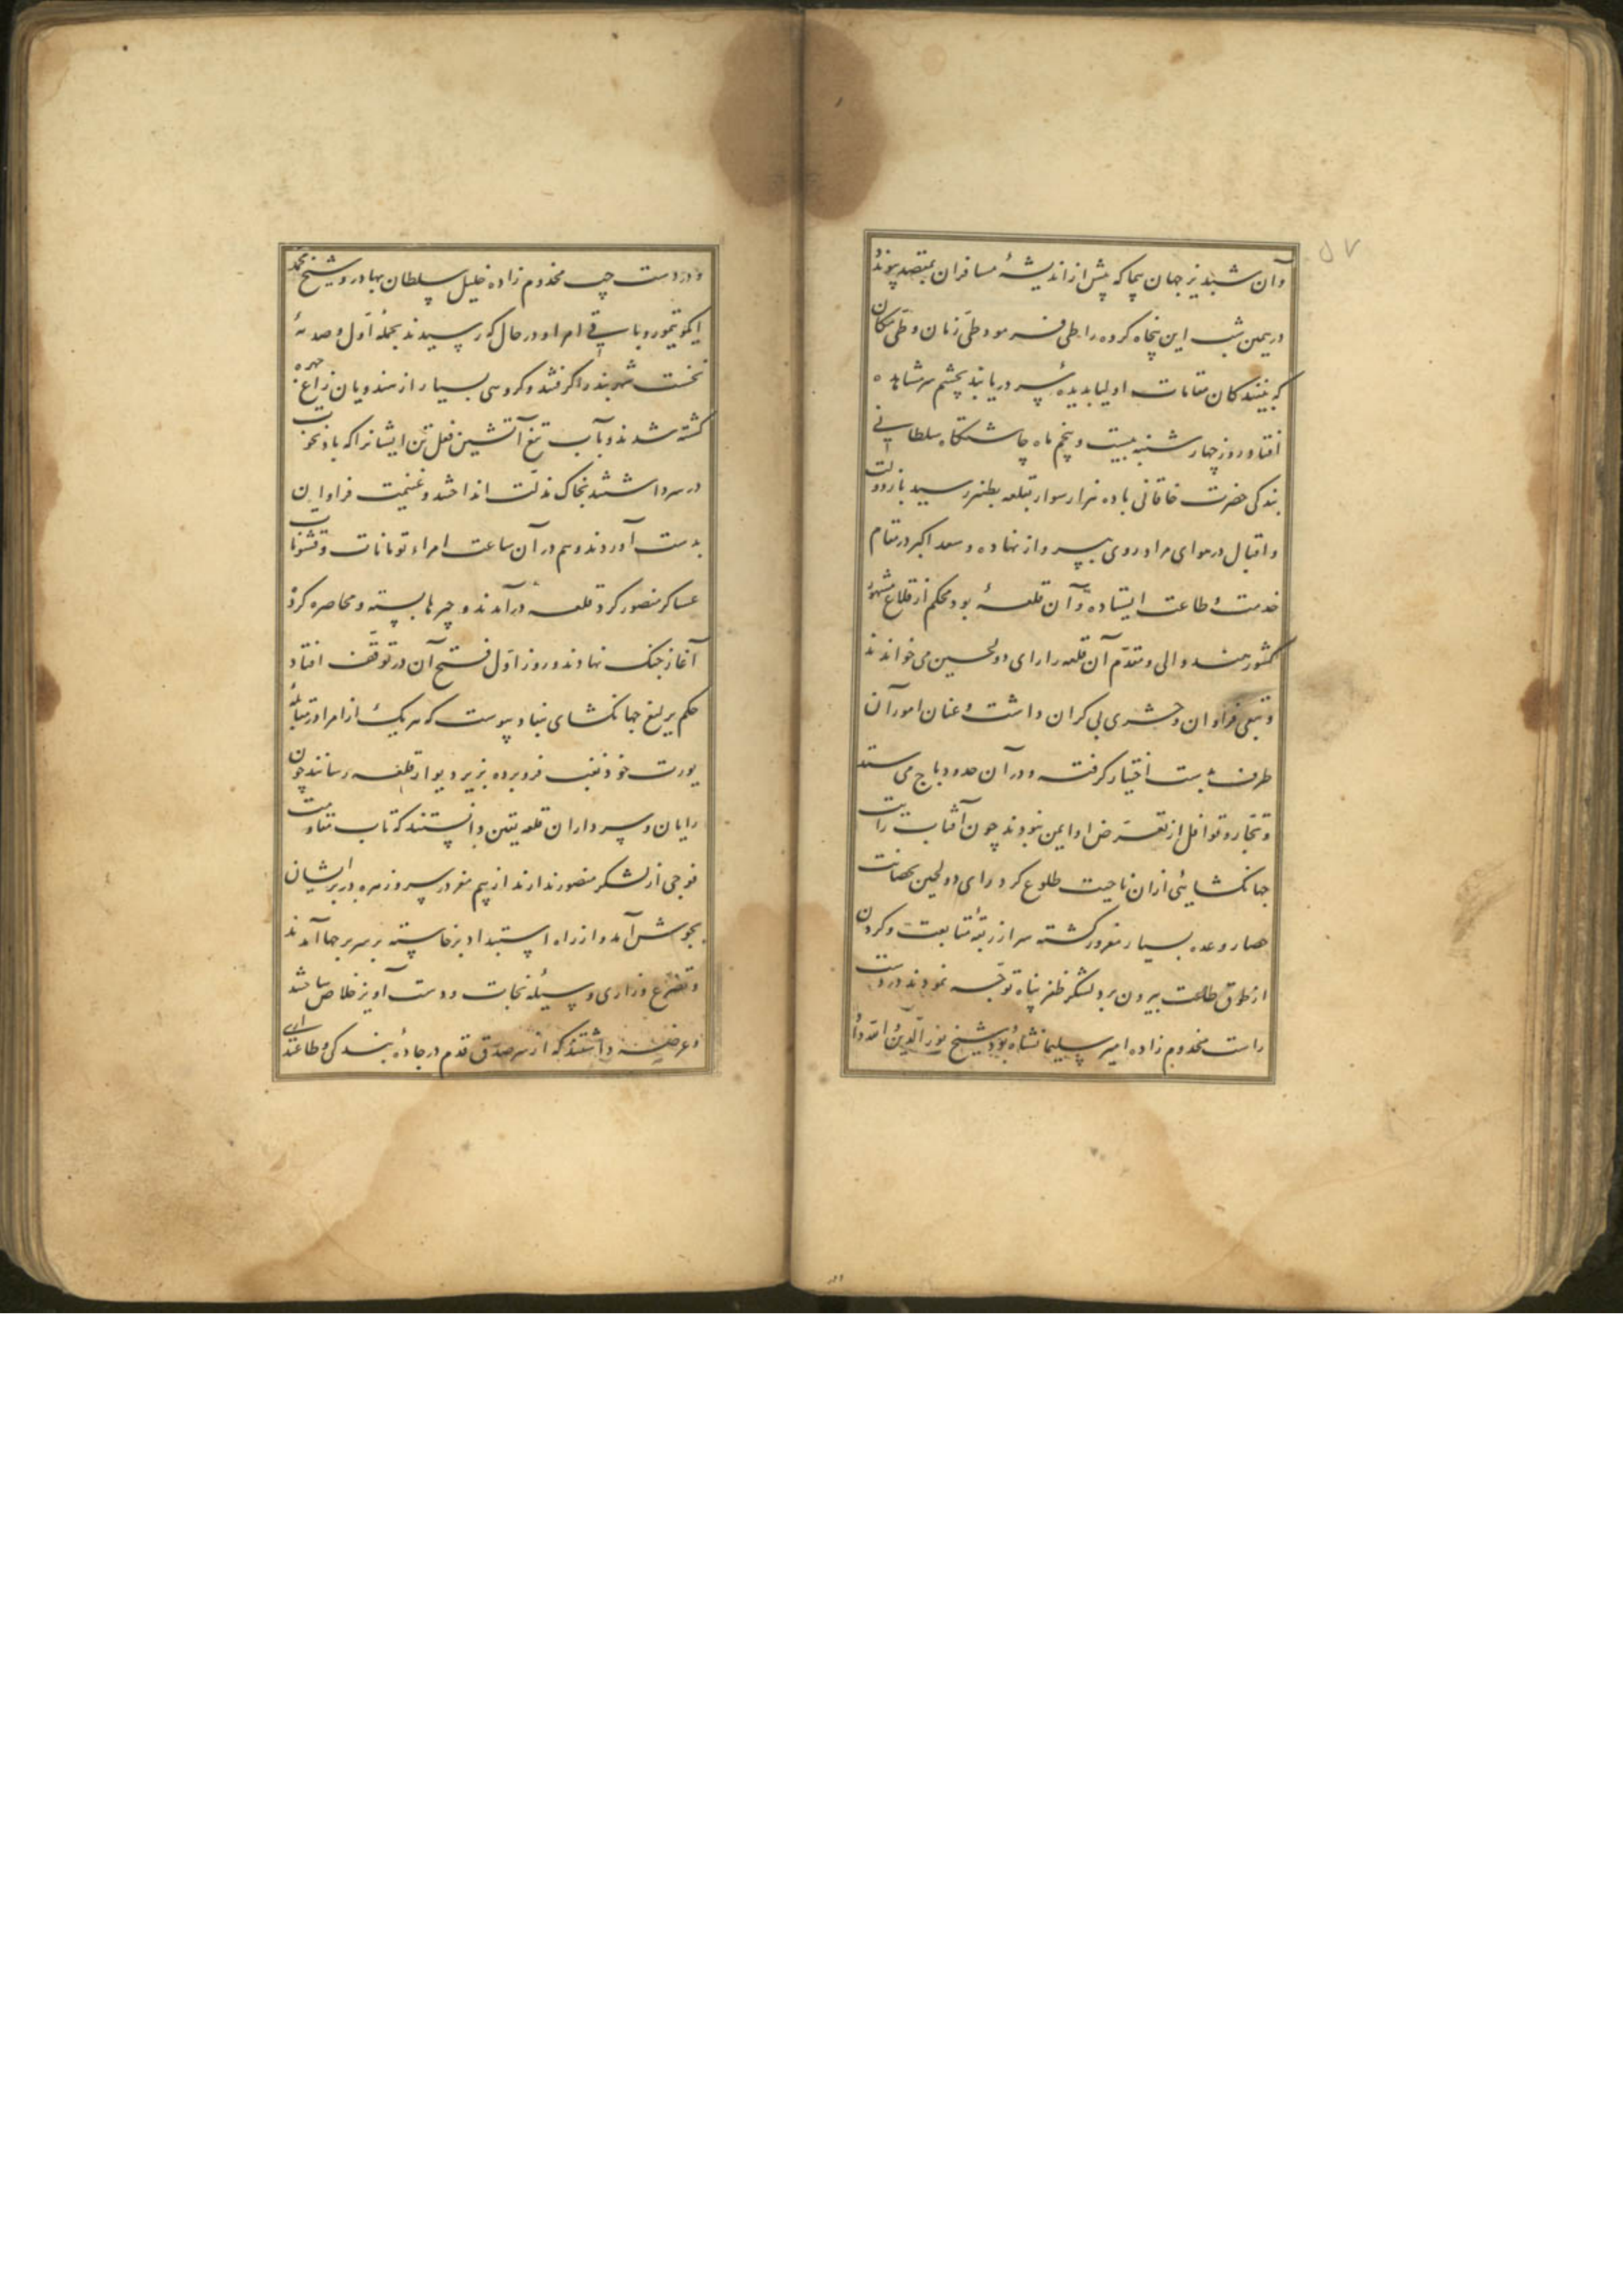 وآن شبدیز جهان پیما که پیش از اندیشهٔ مسافران بمقصد پیوندد
در همین شب این پنجاه کروه راه طی فرمود وطیّ زمان وطیّ مکان
که بینندکان مقامات اولیا بدیدهٔ سر دریابند بچشم سر مشاهده
افتاد و روز چهارشنبه بیست و پنجم ماه چاشتکاه سلطانی
بندکی حضرت خاقانی با ده هزار سوار بقلعه بطنیر رسید باز دولت
و اقبال در هوای مراد روی بپرواز نهاده و سعد اکبر در مقام
خدمت و طاعت ایستاده و آن قلعهٔ بود محکم از قلاع مشهور
کشور هند و والی و مقدّم آن قلعه را رای دولحسین می خواندند
و تبعی فراوان و حشری بی کران داشت و عنان امور آن
طرف بدست اختیار کرفته و در آن حدود باج می ستد
و تجّار و قوافل از تعرّض او ایمن نبودند چون آفتاب رایت
جهانکشایئی از ان ناحیت طلوع کرد رای دولحین بحصانت
حصار و عده بسیار مغرور کشته سر از ربقهٔ متابعت و کردن
از طوق طاعت بیرون برد لشکر ظفر پناه توجّه نمودند در دست
راست مخدوم زاده امیر سلیمانشاه بود و شیخ نور الدین و الله داد
و در دست چپ مخدوم زاده خلیل سلطان بهادر و شیخ محمد
ایکو تیمور و باقی امرا و در حال که رسیدند بحملهٔ اوّل و صدمهٔ
نخست شهربند را کرفتند و کروهی بسیار از هندویان زاغ چهره
کشته شدند و بآب تیغ آتشین فعل تن ایشانرا که باد نخوت
در سر داشتند بخاک مذلّت انداختند و غنیمت فراوان
بدست آوردند و هم در آن ساعت امراء تومانات و قشونات
عساکر منصور کرد قلعه درآمدند و چپرها بسته و محاصره کرده
آغاز جنک نهادند و روز اوّل فتح آن در توقّف افتاد
حکم یرلیغ جهانکشای نفاد پیوست که هر یک از امرا در مقابلهٔ
یورت خود نقب فرو برده بزیر دیوار قلعه رسانند چون
رایان و سرداران قلعه یقین دانستند که تاب مقاومت
فوجی از لشکر منصور ندارند از بیم مغز در سر و زهره در بر ایشان
بجوش آمد و از راه استبداد برخاسته بر سر برجها آمدند
و تضرّع و زاری وسیلهٔ نجات و دست آویز خلاص ساختند
و عرضه داشتند که از سر صدق قدم در جادهٔ بندکی و طاعتداری